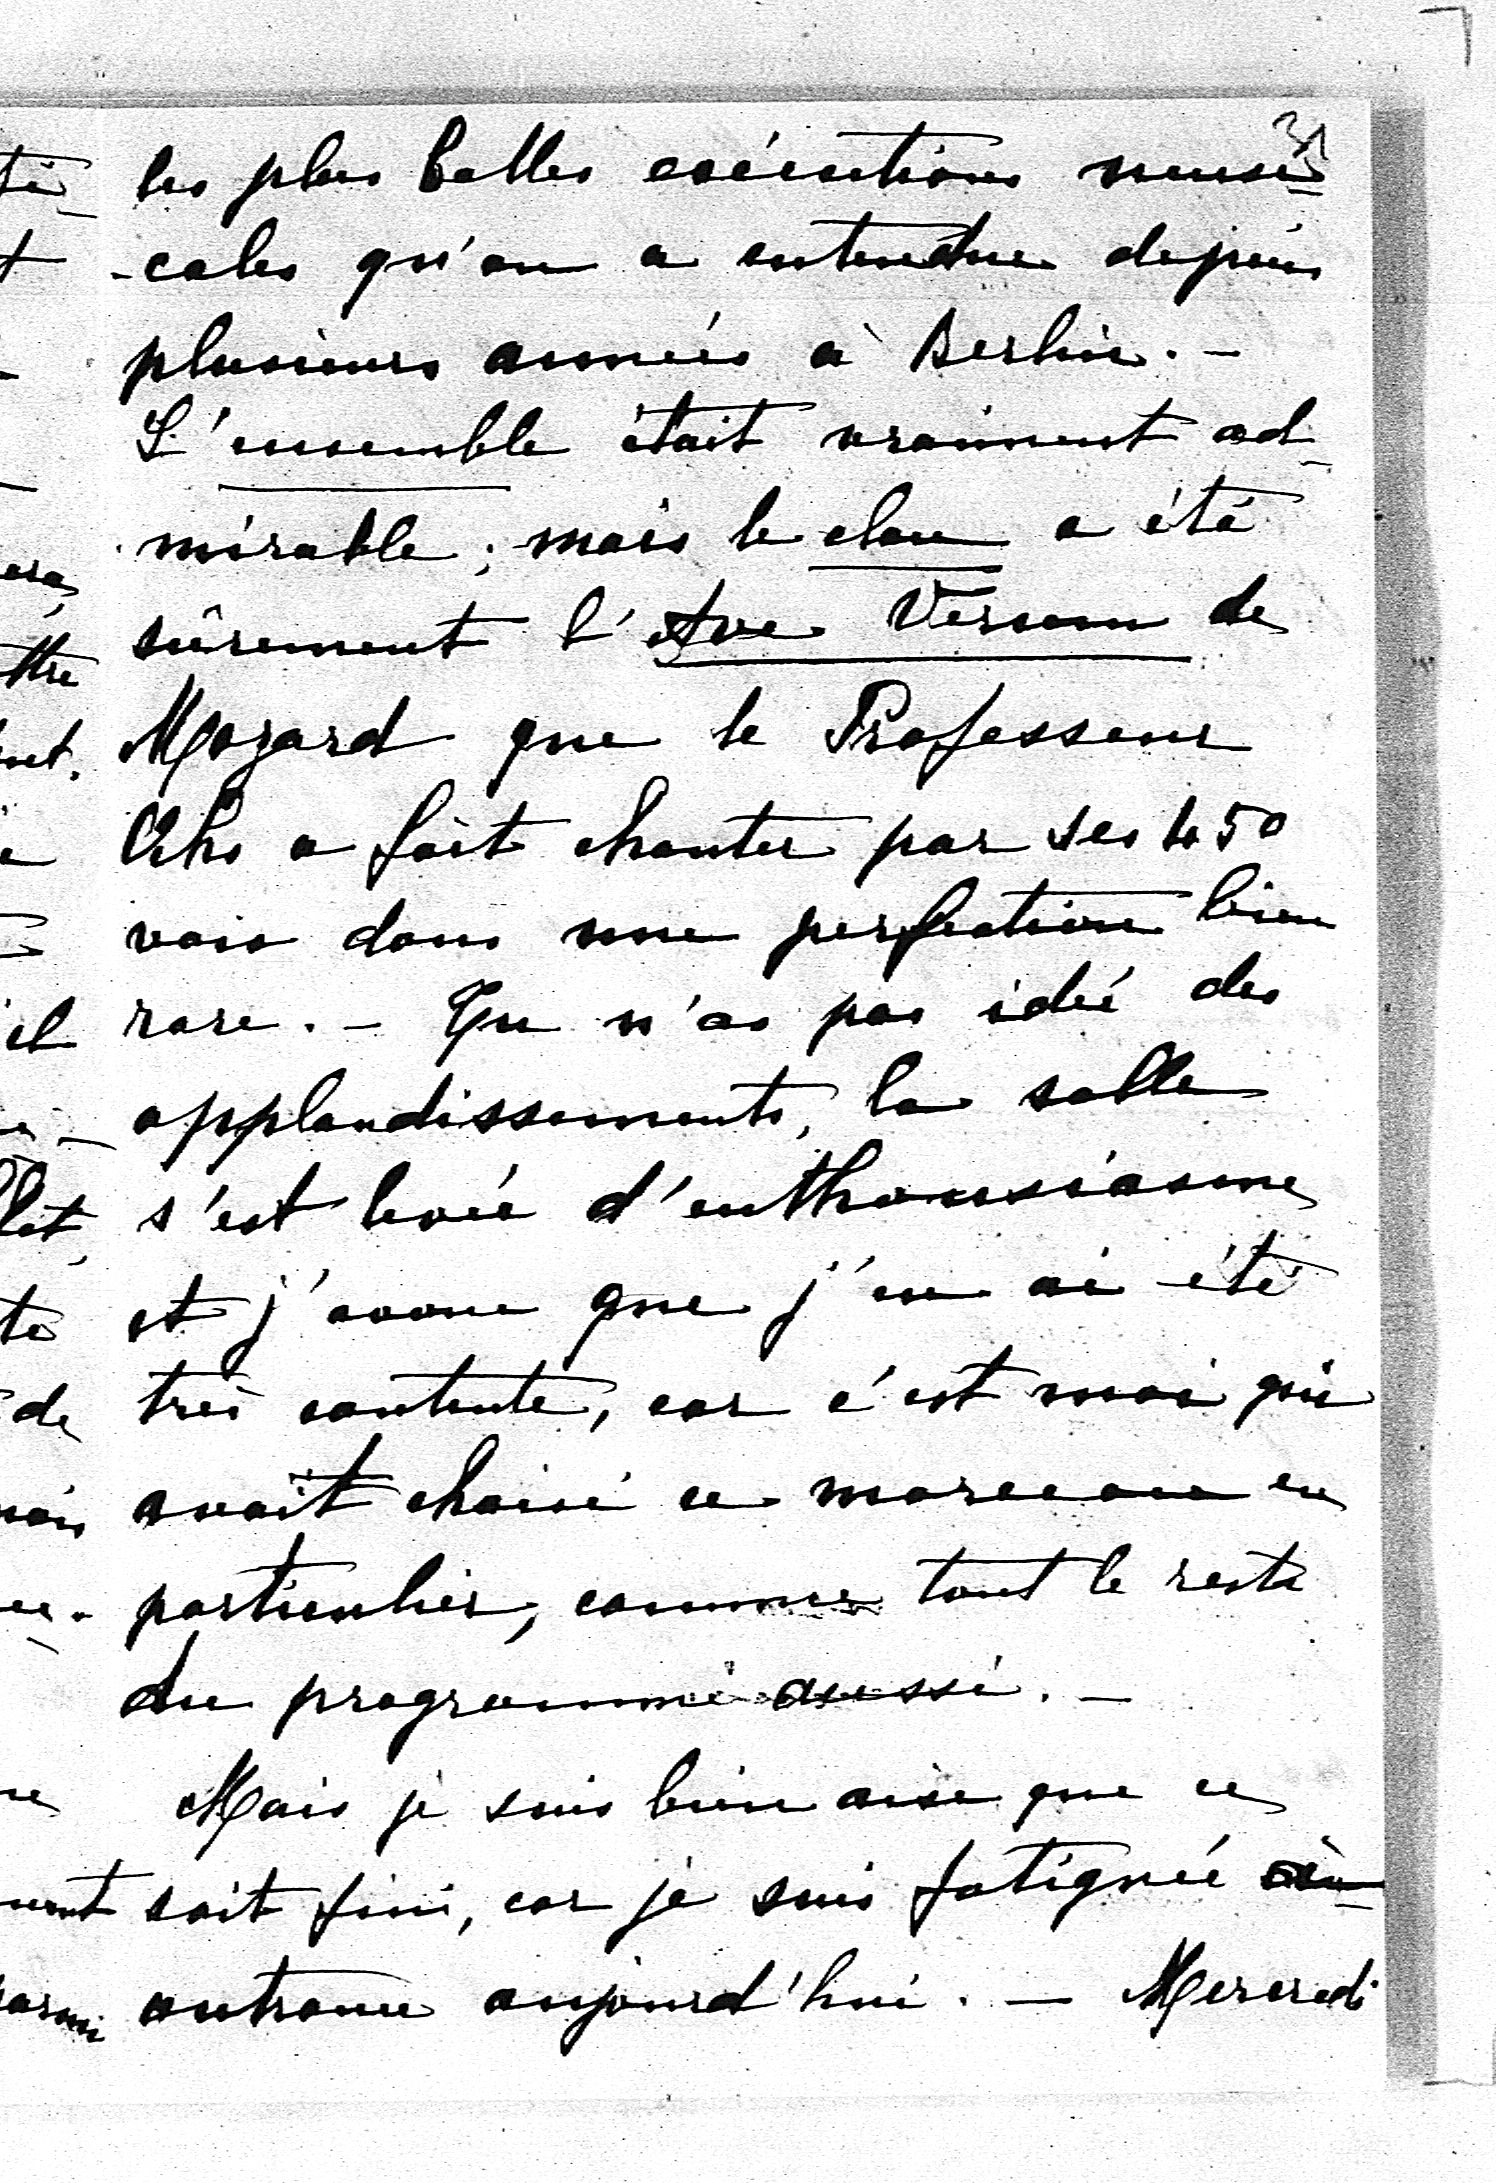 31
les plus belles exécutions musi-
-cales qu'on a entendue depuis
plusieurs années à Berlin. -
L'ensemble était vraiment ad-
mirable; mais le clou a été
sûrement l'Ave Verum de
Mozard que le Professeur
Ochs a fait chanter par ses 450
voix dans une perfection bien
rare. - Tu n'as pas idée des
applaudissements, la salle
s'est levée d'enthousiasme
et j'avoue que j'en ai été
très contente, car c'est moi qui
avait choisi ce morceau en
particulier, comme tout le reste
du programme aussi. -
Mais je suis bien aise que ce
soit fini, car je suis fatiguée
outrance aujourd'hui. - Mercredi